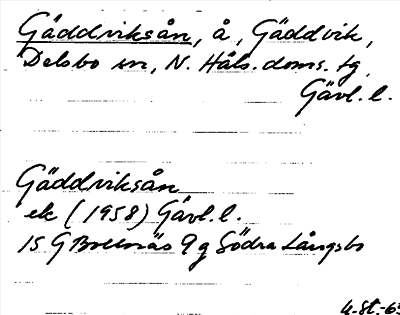 Gäddviksån, å, Gäddvik,
Delsbo sn, N. Häls. doms. tg,
Gävl. l.
Gäddviksån
ek (1958) Gävl. l.
15 G Bollnäs 9 g Södra Långsbo
4.St.-63